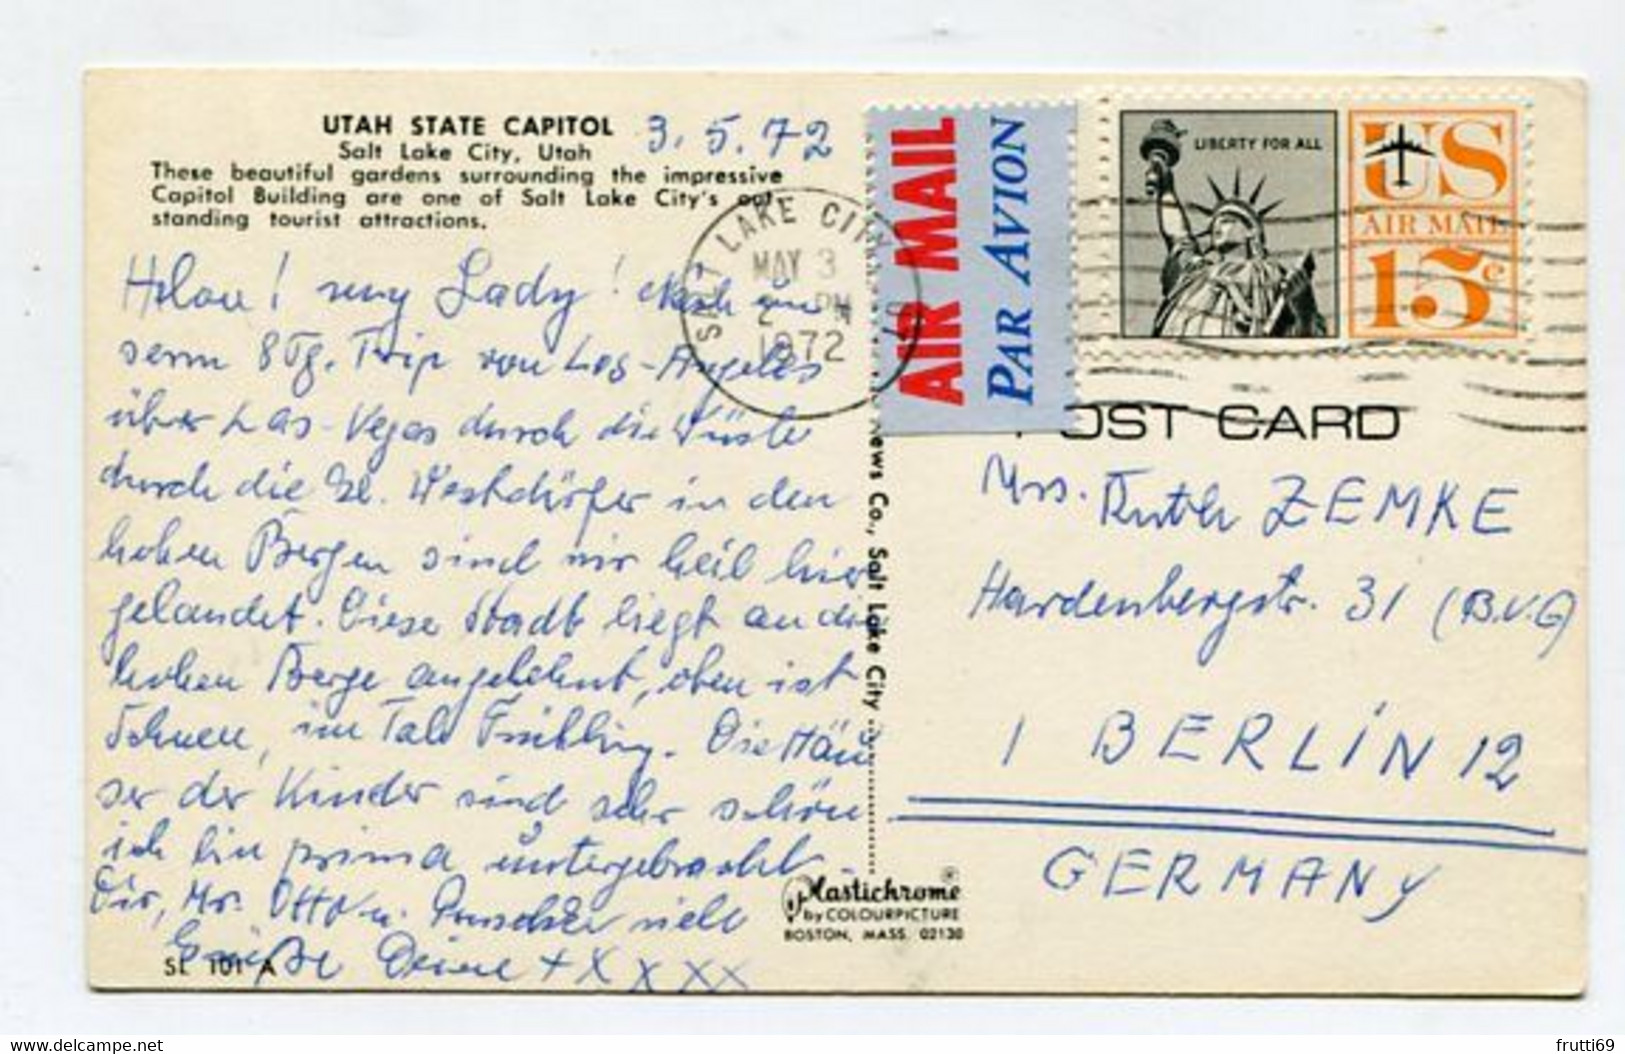 UTAH STATE CAPITOL
Salt Lake City, Utah
3.5.72
These beautiful gardens surrounding the impressive
Capitol Building are one of Salt Lake City's out
standing tourist attractions.
my Lady! Nach un
serm 8 Tg. Trip von Los-Angeles
über Las-Vegas durch die Wüste
durch die Westdörfer in den
hohen Bergen sind wir heil hier
gelandet. Diese Stadt liegt an die
hohen Berge angelehnt, oben ist
Schnee, im Tale Frühling. Die Häu
ser der Kinder sind sehr schön
ich bin prima untergebracht.
Dir, Mr. Otto u. viele
Grüße Deine + X X X X
SL 101 A
SALT LAKE CITY, UT
MAY 3
2 PM
1972
AIR MAIL
PAR AVION
LIBERTY FOR ALL
US
AIR MAIL
15c
POST CARD
News Co., Salt Lake City
Mrs. Ruth ZEMKE
Hardenbergstr. 31 (B.V.G)
1 BERLIN 12
GERMANY
Plastichrome®
by COLOURPICTURE
BOSTON, MASS. 02130
delcampe.net
frutti69